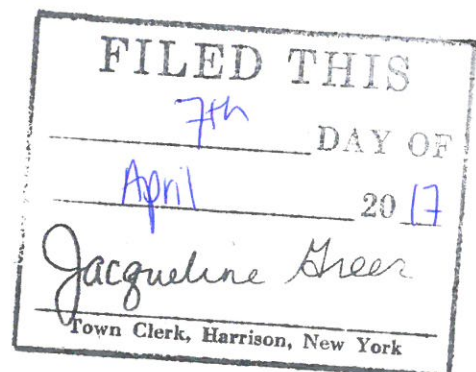 FILED THIS
7th DAY OF
April 20 17
Jacqueline Greer
Town Clerk, Harrison, New York